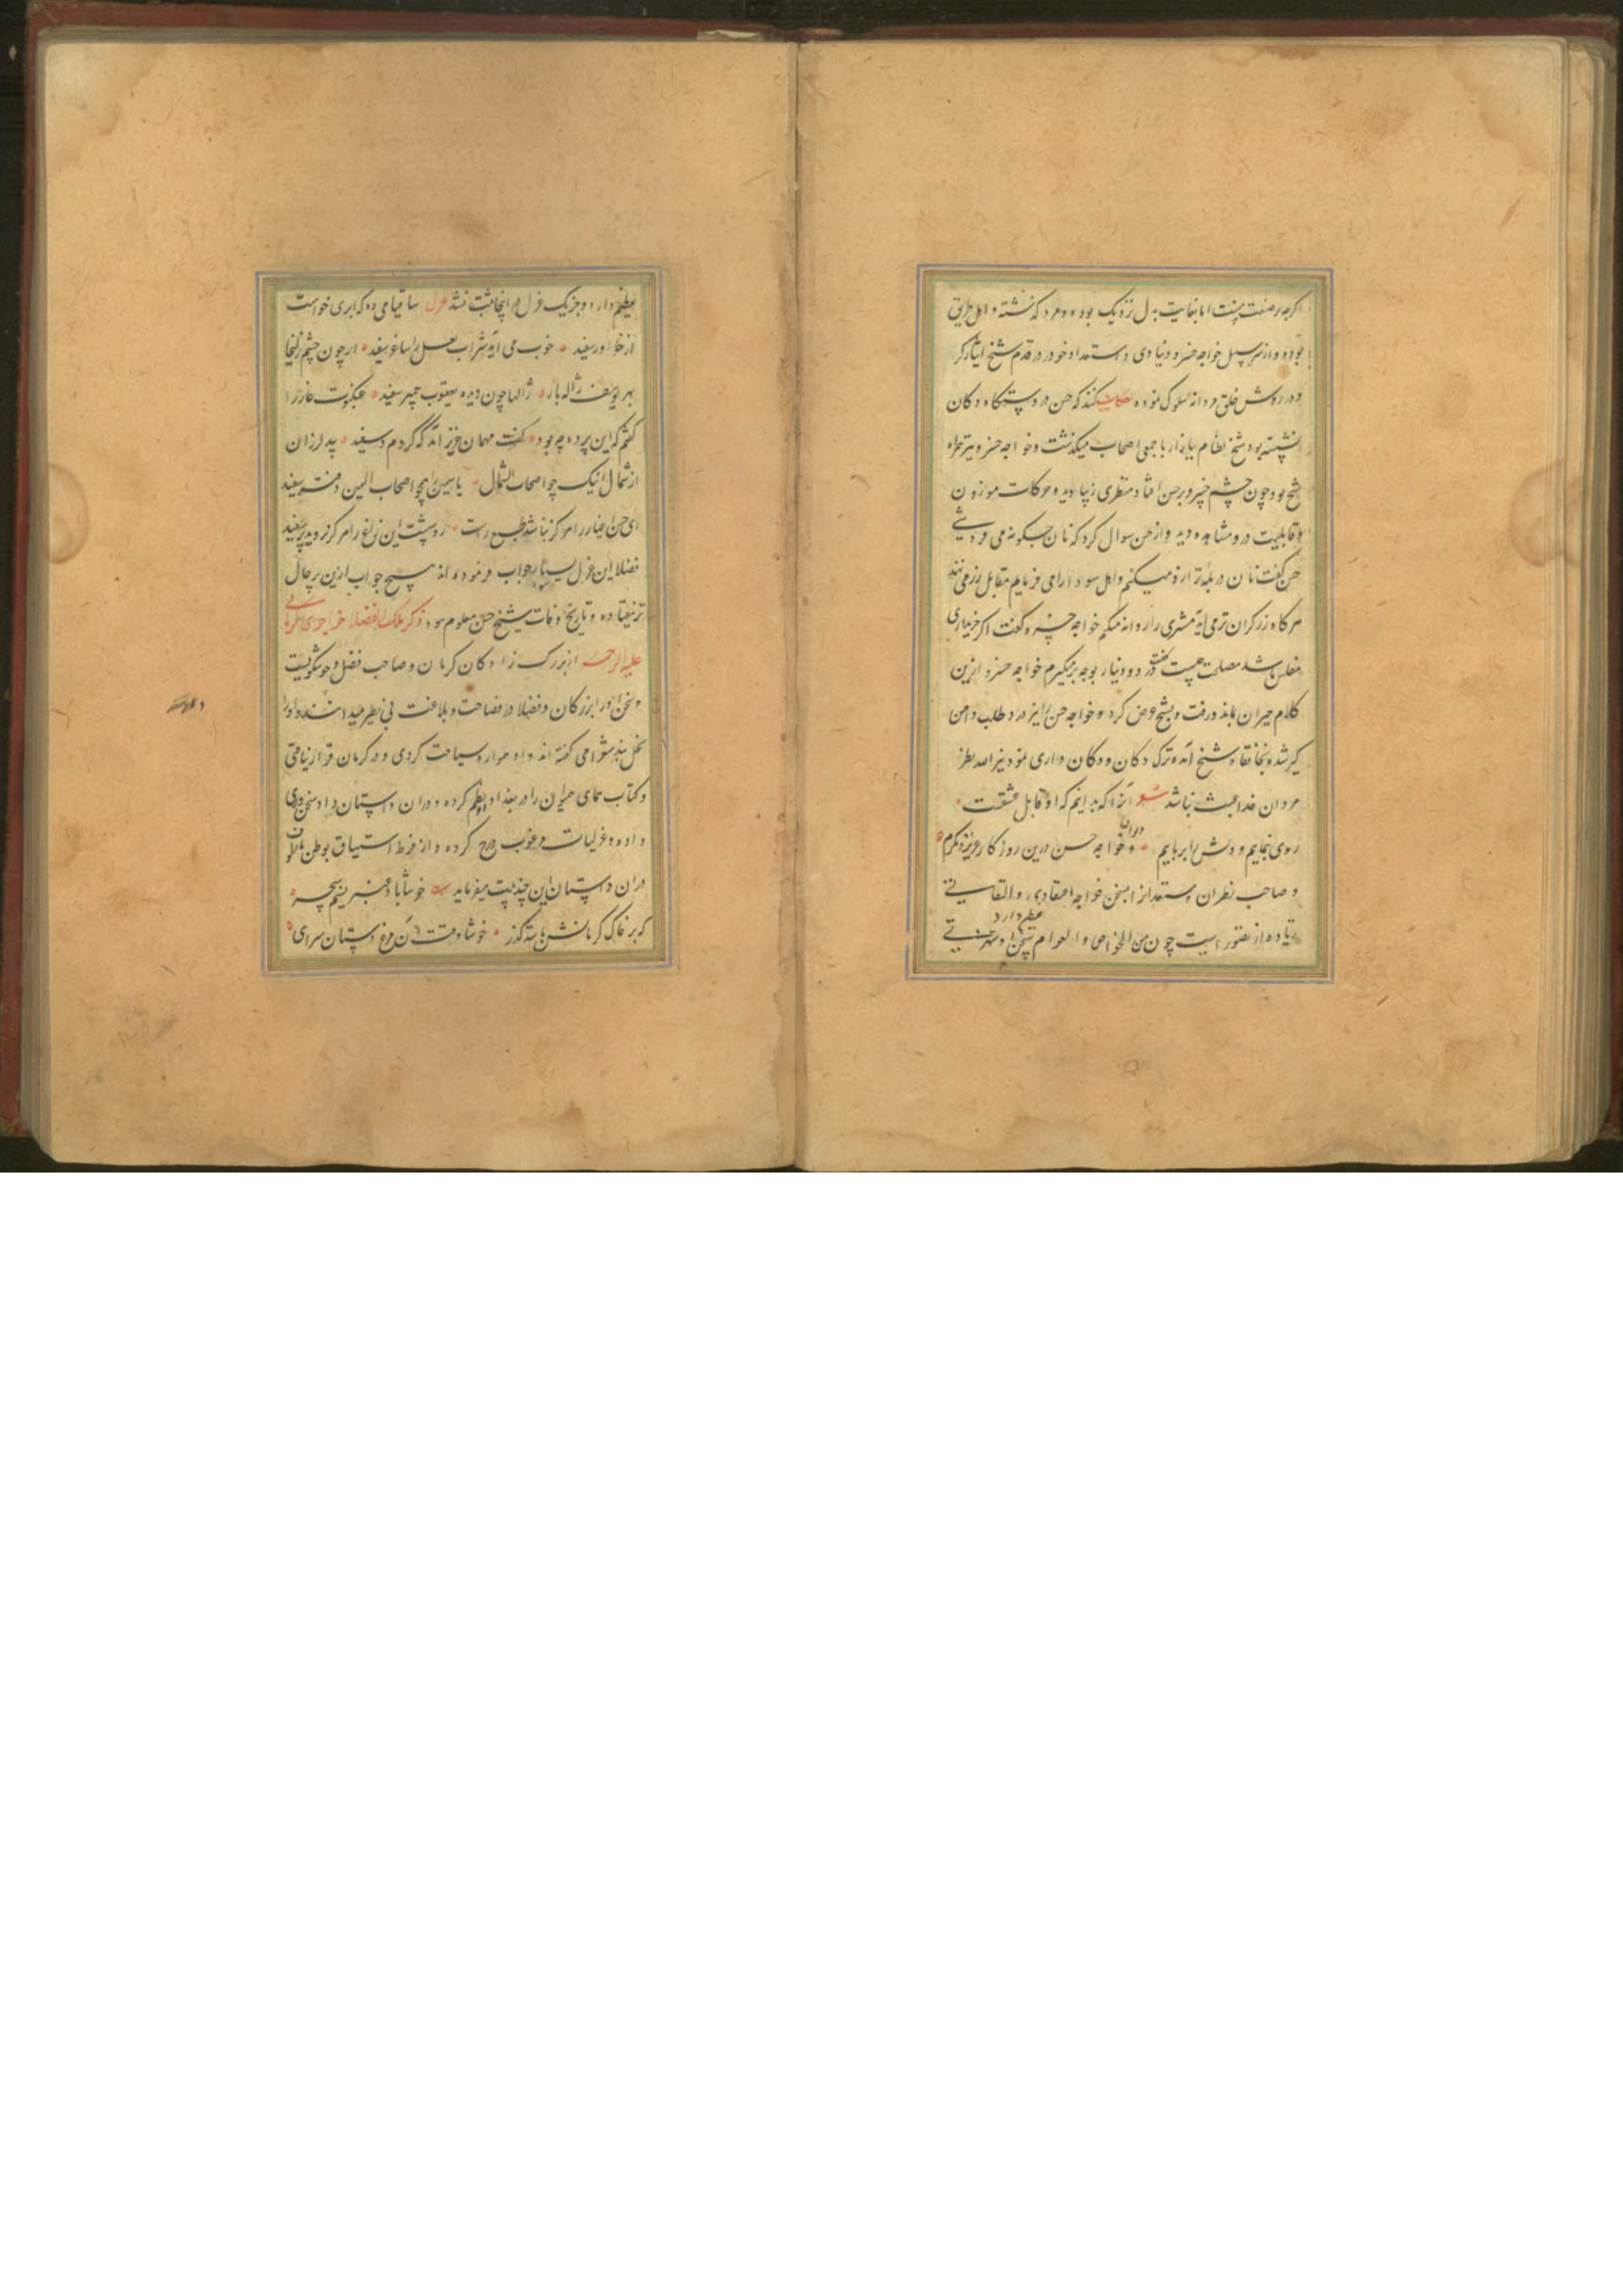 اگرچه پرصنعت نیست اما بغایت به دل نزدیک بود و مرد گذشته و اهل طریق
بوده و از سر سبیل خواجه خسرو دنیاوی و استعداد خود در قدم شیخ ایثار کرد
و در روش خلق مردانه سلوک نموده حکایت کنند که حسن در دستگاه دکان
نشسته بود شیخ نظام ببازار با جمعی اصحاب میگذشت و خواجه خسرو نیز همراه
شیخ بود چون چشم خسرو بر حسن افتاد منظری زیبا دید و حرکات موزون
و قابلیت درو مشاهده دید و از حسن سوال کرد که نان چگونه می فروشی
حسن گفت نان در پله ترازو میکنم و اهل سودا را می فرمایم مقابل زر می نهند
هرگاه زر گران تر می آید مشتری را روانه میکنم خواجه خسرو گفت اگر خریداری
مفلس باشد مصلحت چیست گفت درد و نیاز بوجه برمیگیرم خواجه خسرو ازین
کلام حیران بماند و رفت و بشیخ عرض کرد و خواجه حسن را نیز درد طلب دامن
گیر شده بخانقاه شیخ آمده ترک دکان و دکان داری نمود نیز الله نظر
مردان خدا عبث نباشد شعر آنرا که بدانیم که او قابل عشقست
روی بنماییم و دلش را برباییم و دیوان خواجه حسن درین روزگار عزیز و مکرم
و صاحب نظران و مستعدانرا بسخن خواجه اعتقادی و التفاتی
زیاده از تصور است چون من الخواص و العوام سخن او شهرتی
عظیم دارد
عظیم دارد و جز یک غزل در اینجا ثبت نشد غزل ساقیا می ده که ابری خواست
از خاور سفید خوب می آید شراب لعل را ساغر سفید ابر چون چشم زلیخا
بهر یوسف ژاله بار ژالها چون دیده یعقوب پیمبر سفید عنکبوت غار را
گفتم که این پرده چه بود گفت مهمان عزیز آمد که کردم در سفید بید لرزان
از شمال اینک چو اصحاب الشمال یاسمین همچو اصحاب الیمین دفتر سفید
ای حسن اغیار را هرگز نباشد طبع راست راست این زاغ را هرگز نروید پر سفید
فضلا این غزل بسیار جواب فرموده اند هیچ جواب ازین برحال
تر نیفتاده و تاریخ وفات شیخ حسن معلوم نبود ذکر ملک الفضلا خواجوی کرمانی
علیه الرحمه از بزرگ زادگان کرمان و صاحب فضل و خوشگویست
و سخن او را بزرگان و فضلا در فصاحت و بلاغت بی نظیر میدانند و او را
نخل بند شعرا می گفته اند و او همواره سیاحت کردی و در کرمان قرار نیافتی
و کتاب همای همایون را در بغداد نظم کرده و در آن داستان داد سخن وری
داده و غزلیات مرغوب درج کرده و از فرط اشتیاق بوطن مالوف
در آن داستان این چند بیت میفرماید خوشا باد عنبر نسیم سحر
که بر خاک کرمانش باشد گذر خوشا وقت آن مرغ دستان سرای